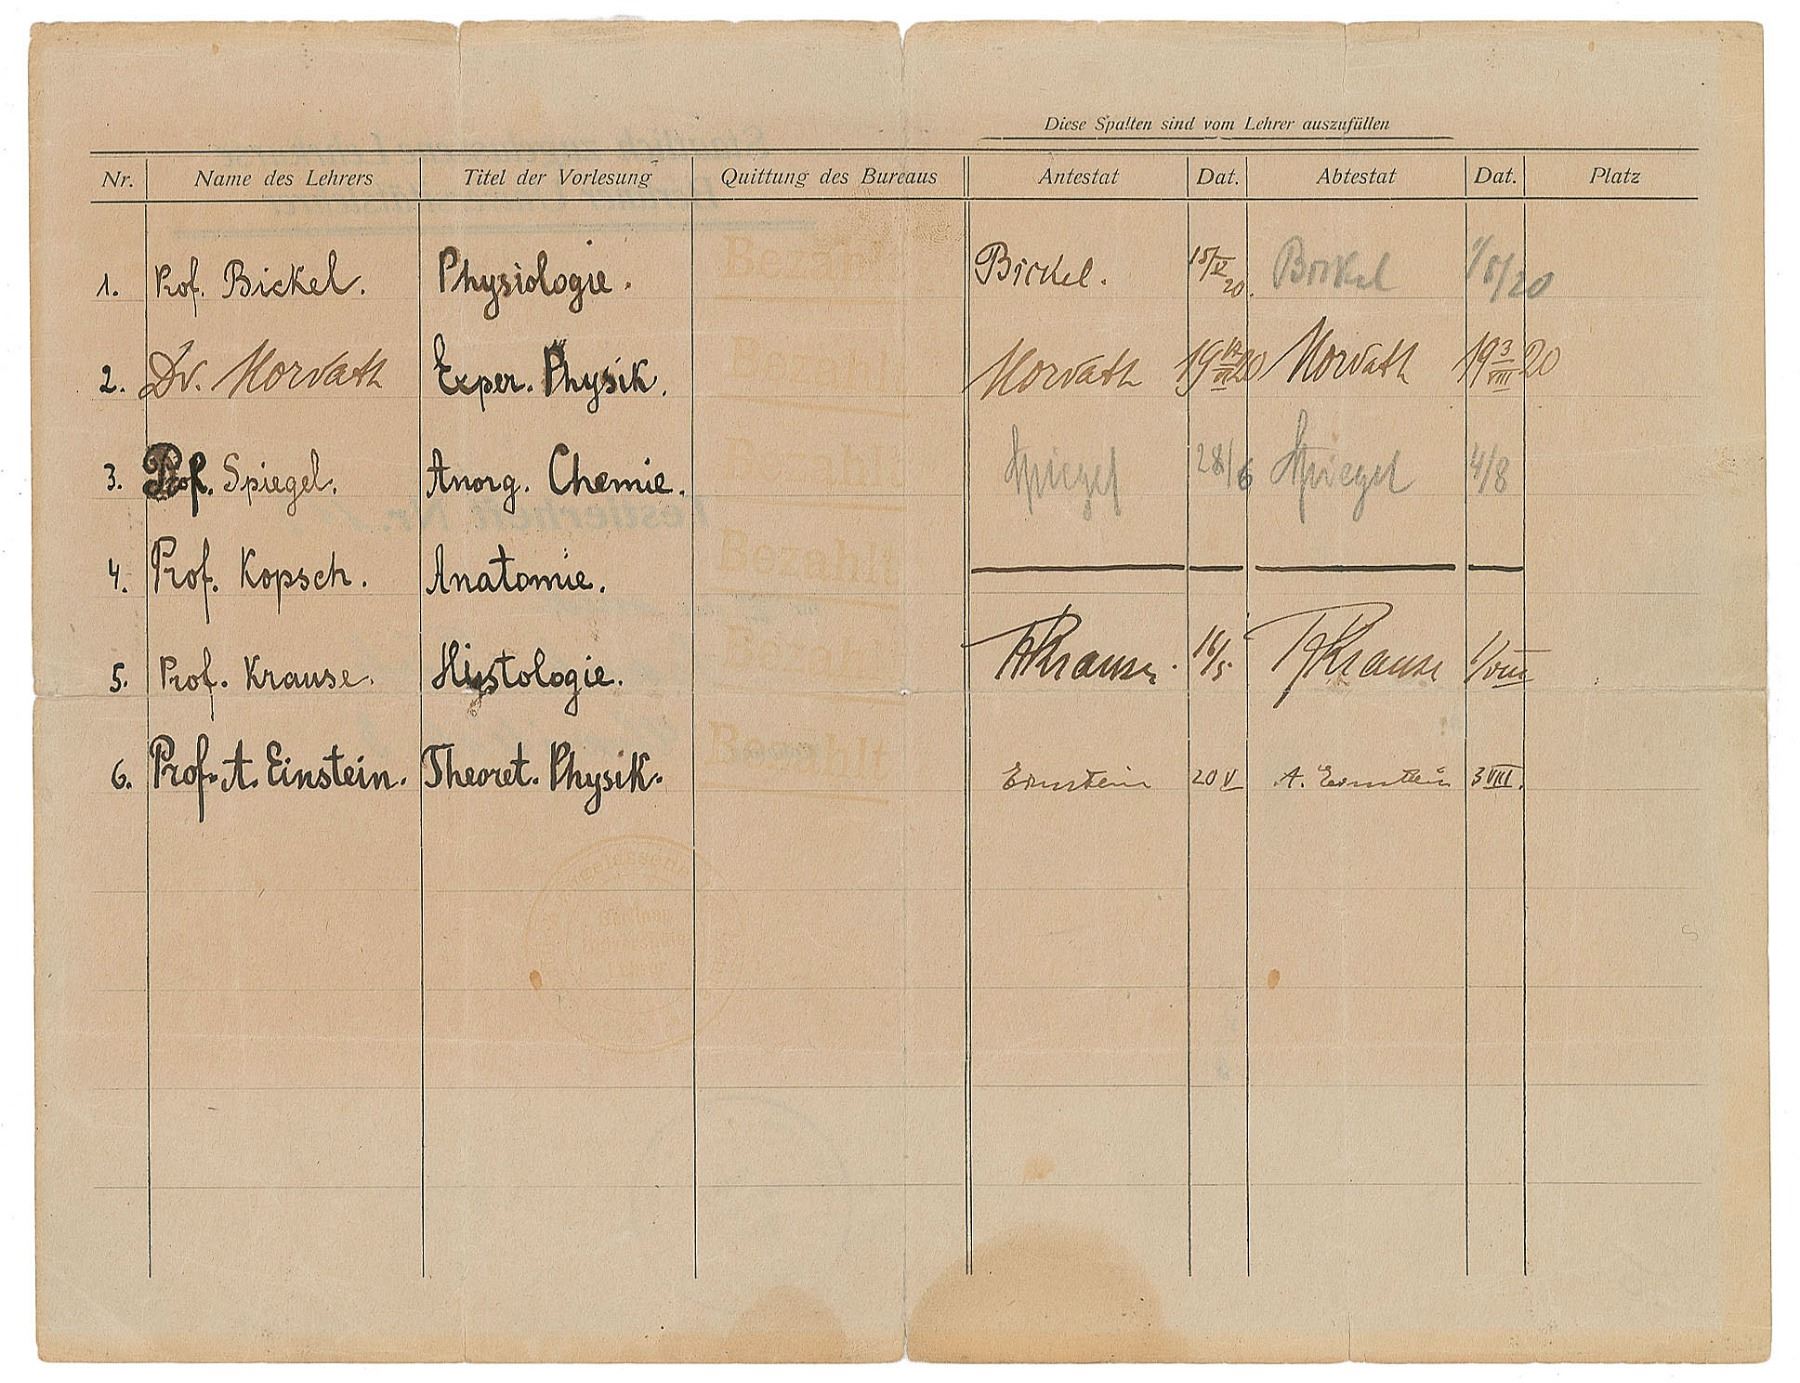 Diese Spalten sind vom Lehrer auszufüllen
Nr. Name des Lehrers Titel der Vorlesung Quittung des Bureaus Antestat Dat. Abtestat Dat. Platz
1. Prof. Bickel. Physiologie. Bezahlt Bickel. 15/V 20. Bickel 1/8/20
2. Dr. Horvath Exper. Physik. Bezahlt Horvath Horvath 19 3/VIII 20
3. Prof. Spiegel. Anorg. Chemie. Bezahlt Spiegel 28/6 Spiegel 4/8
4. Prof. Kopsch. Anatomie. Bezahlt
5. Prof. Krause. Histologie. Bezahlt RKrause. 16/5. RKrause 1/VIII
6. Prof. A. Einstein. Theoret. Physik. Bezahlt Einstein 20 V A. Einstein 3 VIII.